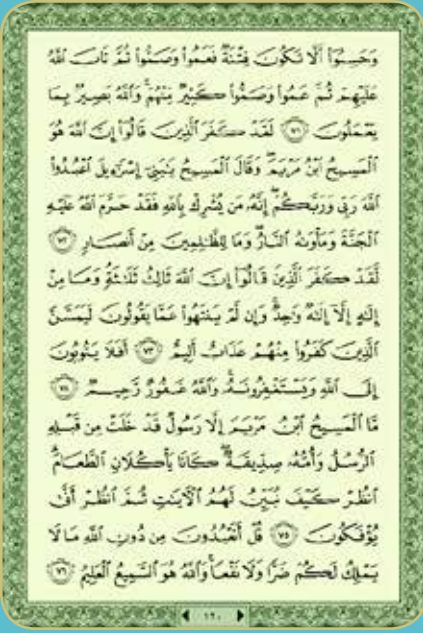 وَحَسِبُوٓا۟ أَلَّا تَكُونَ فِتْنَةٌ فَعَمُوا۟ وَصَمُّوا۟ ثُمَّ تَابَ ٱللَّهُ
عَلَيْهِمْ ثُمَّ عَمُوا۟ وَصَمُّوا۟ كَثِيرٌ مِّنْهُمْ ۚ وَٱللَّهُ بَصِيرٌۢ بِمَا
يَعْمَلُونَ ٧١ لَقَدْ كَفَرَ ٱلَّذِينَ قَالُوٓا۟ إِنَّ ٱللَّهَ هُوَ
ٱلْمَسِيحُ ٱبْنُ مَرْيَمَ ۖ وَقَالَ ٱلْمَسِيحُ يَٰبَنِىٓ إِسْرَٰٓءِيلَ ٱعْبُدُوا۟
ٱللَّهَ رَبِّى وَرَبَّكُمْ ۖ إِنَّهُۥ مَن يُشْرِكْ بِٱللَّهِ فَقَدْ حَرَّمَ ٱللَّهُ عَلَيْهِ
ٱلْجَنَّةَ وَمَأْوَىٰهُ ٱلنَّارُ ۖ وَمَا لِلظَّٰلِمِينَ مِنْ أَنصَارٍ ٧٢
لَّقَدْ كَفَرَ ٱلَّذِينَ قَالُوٓا۟ إِنَّ ٱللَّهَ ثَالِثُ ثَلَٰثَةٍ ۘ وَمَا مِنْ
إِلَٰهٍ إِلَّآ إِلَٰهٌ وَٰحِدٌ ۚ وَإِن لَّمْ يَنتَهُوا۟ عَمَّا يَقُولُونَ لَيَمَسَّنَّ
ٱلَّذِينَ كَفَرُوا۟ مِنْهُمْ عَذَابٌ أَلِيمٌ ٧٣ أَفَلَا يَتُوبُونَ
إِلَى ٱللَّهِ وَيَسْتَغْفِرُونَهُۥ ۚ وَٱللَّهُ غَفُورٌ رَّحِيمٌ ٧٤
مَّا ٱلْمَسِيحُ ٱبْنُ مَرْيَمَ إِلَّا رَسُولٌ قَدْ خَلَتْ مِن قَبْلِهِ
ٱلرُّسُلُ وَأُمُّهُۥ صِدِّيقَةٌ ۖ كَانَا يَأْكُلَانِ ٱلطَّعَامَ ۗ
ٱنظُرْ كَيْفَ نُبَيِّنُ لَهُمُ ٱلْءَايَٰتِ ثُمَّ ٱنظُرْ أَنَّىٰ
يُؤْفَكُونَ ٧٥ قُلْ أَتَعْبُدُونَ مِن دُونِ ٱللَّهِ مَا لَا
يَمْلِكُ لَكُمْ ضَرًّا وَلَا نَفْعًا ۚ وَٱللَّهُ هُوَ ٱلسَّمِيعُ ٱلْعَلِيمُ ٧٦
١٢٠